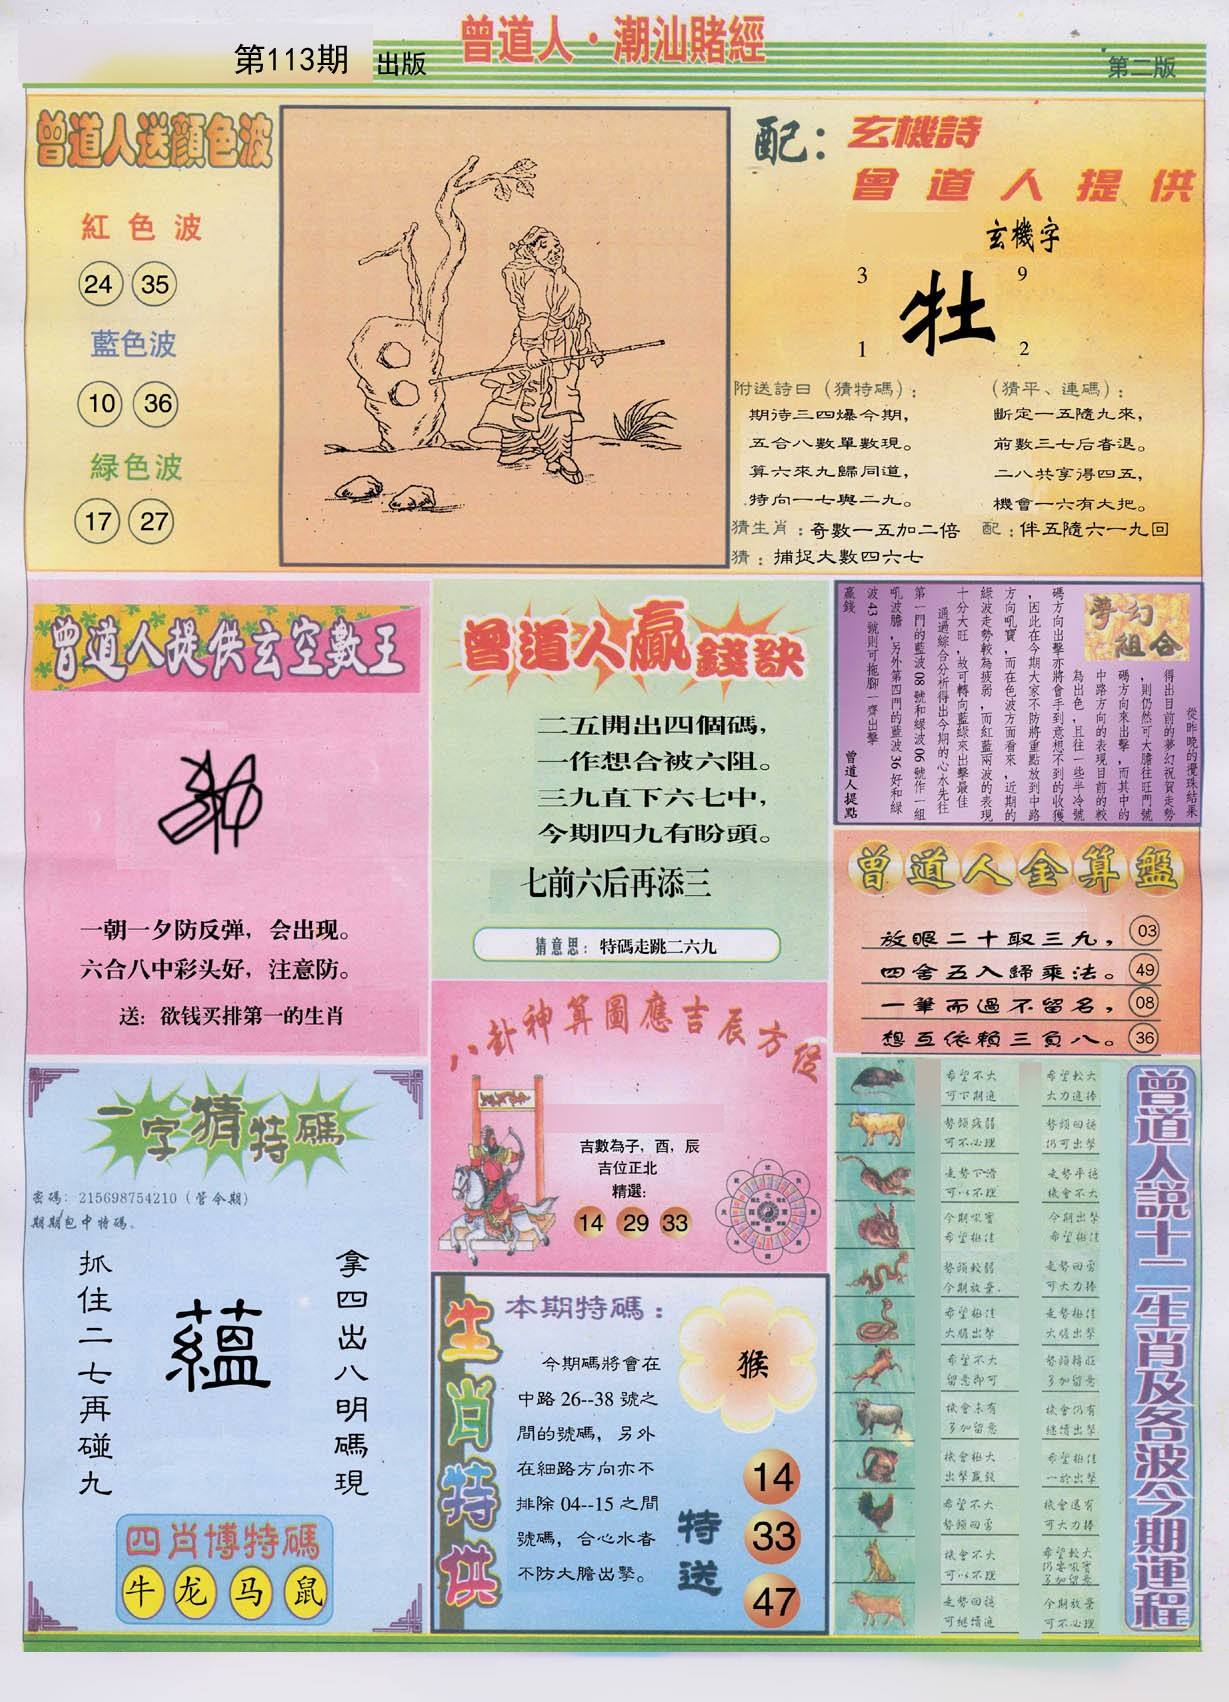 第113期 出版
曾道人·潮汕賭經
第二版
曾道人送顔色波
紅色波
24 35
藍色波
10 36
緑色波
17 27
配：玄機詩
曾道人提供
玄機字
3 9
牡
1 2
附送詩曰（猜特碼）：
期待三四爆今期，
五合八數單數現。
算六來九歸同道，
特向一七與二九。
（猜平、連碼）：
斷定一五隨九來，
前數三七后者退。
二八共享得四五，
機會一六有大把。
猜生肖：奇數一五加二倍
配：伴五隨六一九回
猜：捕捉大數四六七
曾道人提供玄空數王
一朝一夕防反弹，会出现。
六合八中彩头好，注意防。
送：欲钱买排第一的生肖
曾道人贏錢訣
二五開出四個碼，
一作想合被六阻。
三九直下六七中，
今期四九有盼頭。
七前六后再添三
猜意思：特碼走跳二六九
夢幻組合
從昨晚的攪珠結果
得出目前的夢幻祝賀走勢
，則仍然可大膽往旺門號
碼方向來出擊，而其中的
中路方向的表現目前的較
為出色，且往一些半冷號
碼方向出擊亦將會手到意想不到的收獲
，因此在今期大家不防將重點放到中路
方向吼寶，而在色波方面看來，近期的
綠波走勢較為疲弱，而紅藍兩波的表現
十分大旺，故可轉向藍綠來出擊最佳
通過綜合分析得出今期的心水先往
第一門的藍波08號和綠波06號作一組
吼波膽，另外第四門的藍波36好和綠
波43號則可拖腳一齊出擊
贏錢
曾道人提點
曾道人金算盤
放眼二十取三九， 03
四舍五入歸乘法。 49
一筆而過不留名， 08
想互依賴三負八。 36
八卦神算圖應吉辰方位
吉數為子，酉，辰
吉位正北
精選：
14 29 33
一字猜特碼
密碼：215698754210（管令期）
期期包中特碼。
拿四出八明碼現
蘊
抓住二七再碰九
四肖博特碼
牛 龙 马 鼠
生肖特供
本期特碼：
猴
今期碼將會在
中路26--38號之
間的號碼，另外
在細路方向亦不
排除04--15之間
號碼，合心水者
不防大膽出擊。
特送
14
33
47
曾道人説十二生肖及各波今期運程
希望不大
可下期進
希望較大
大力進捧
勢頭殘弱
可不心理
勢頭回穩
仍可出擊
走勢下滑
可以不理
走勢平穩
機會不大
今期吼寶
希望極佳
今期出擊
希望極佳
勢頭較弱
今期放棄.
走勢回勇
可大力捧
希望極佳
大膽出擊
走勢極佳
大膽出擊
希望不大
留意即可
勢頭轉旺
多加留意
機會未有
多加留意
機會仍有
繼續出擊
機會極大
出擊贏錢
希望極佳
一於出擊
希望不大
勢頭回勇
機會還有
可大力捧
機會不大
可以不理
希望較大
仍要吼寶
多加留意
走勢回穩
可繼續進
今期放棄
可不心理